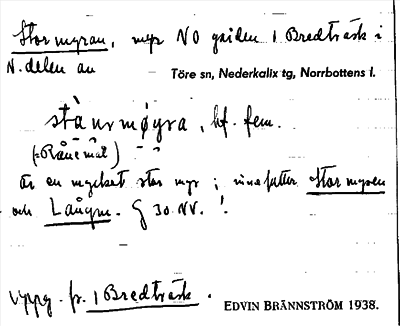 Stormyran, myr NO gården 1 Bredträsk i
N. delen av
Töre sn, Nederkalix tg, Norrbottens l.
stànrmøyra, bf. fem.
(=Rånemål)
Är en mycket stor myr; innefattar Stormyren
och Långm. G 30. NV. !
Uppg. fr. 1 Bredträsk.
EDVIN BRÄNNSTRÖM 1938.